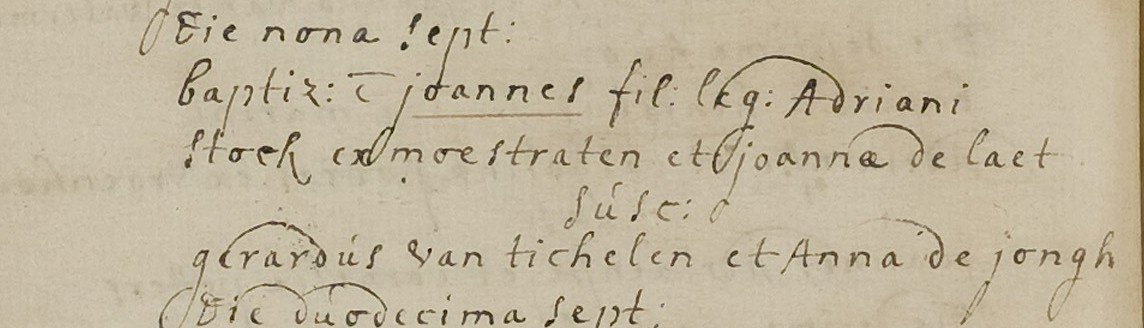 Die nona sept:
baptiz: ē joannes fil: leg: Adriani
stock ex moestraten et joannæ de laet
súsc:
gerardús van tichelen et Anna de jongh
Die dúodecima sept: